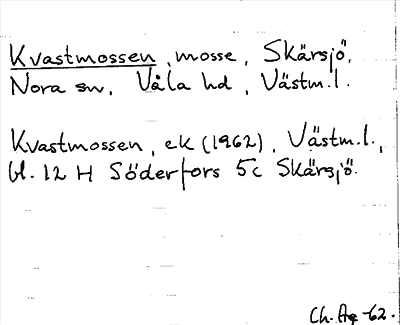 Kvastmossen, mosse, Skärsjö,
Nora sn, Våla hd, Västm.l.
Kvastmossen, ek (1962), Västm.l.,
bl. 12 H Söderfors 5c Skärsjö.
Ch. Ag -62.